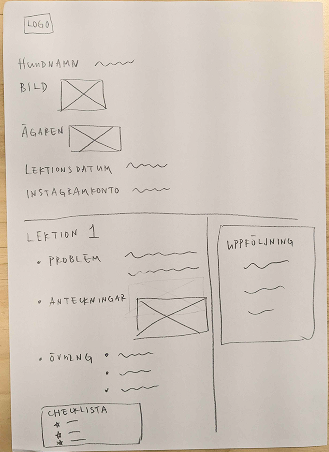 LOGO
HUNDNAMN
BILD
ÄGAREN
LEKTIONSDATUM
INSTAGRAMKONTO
LEKTION 1
• PROBLEM
• ANTECKNINGAR
• ÖVNING
CHECKLISTA
UPPFÖLJNING